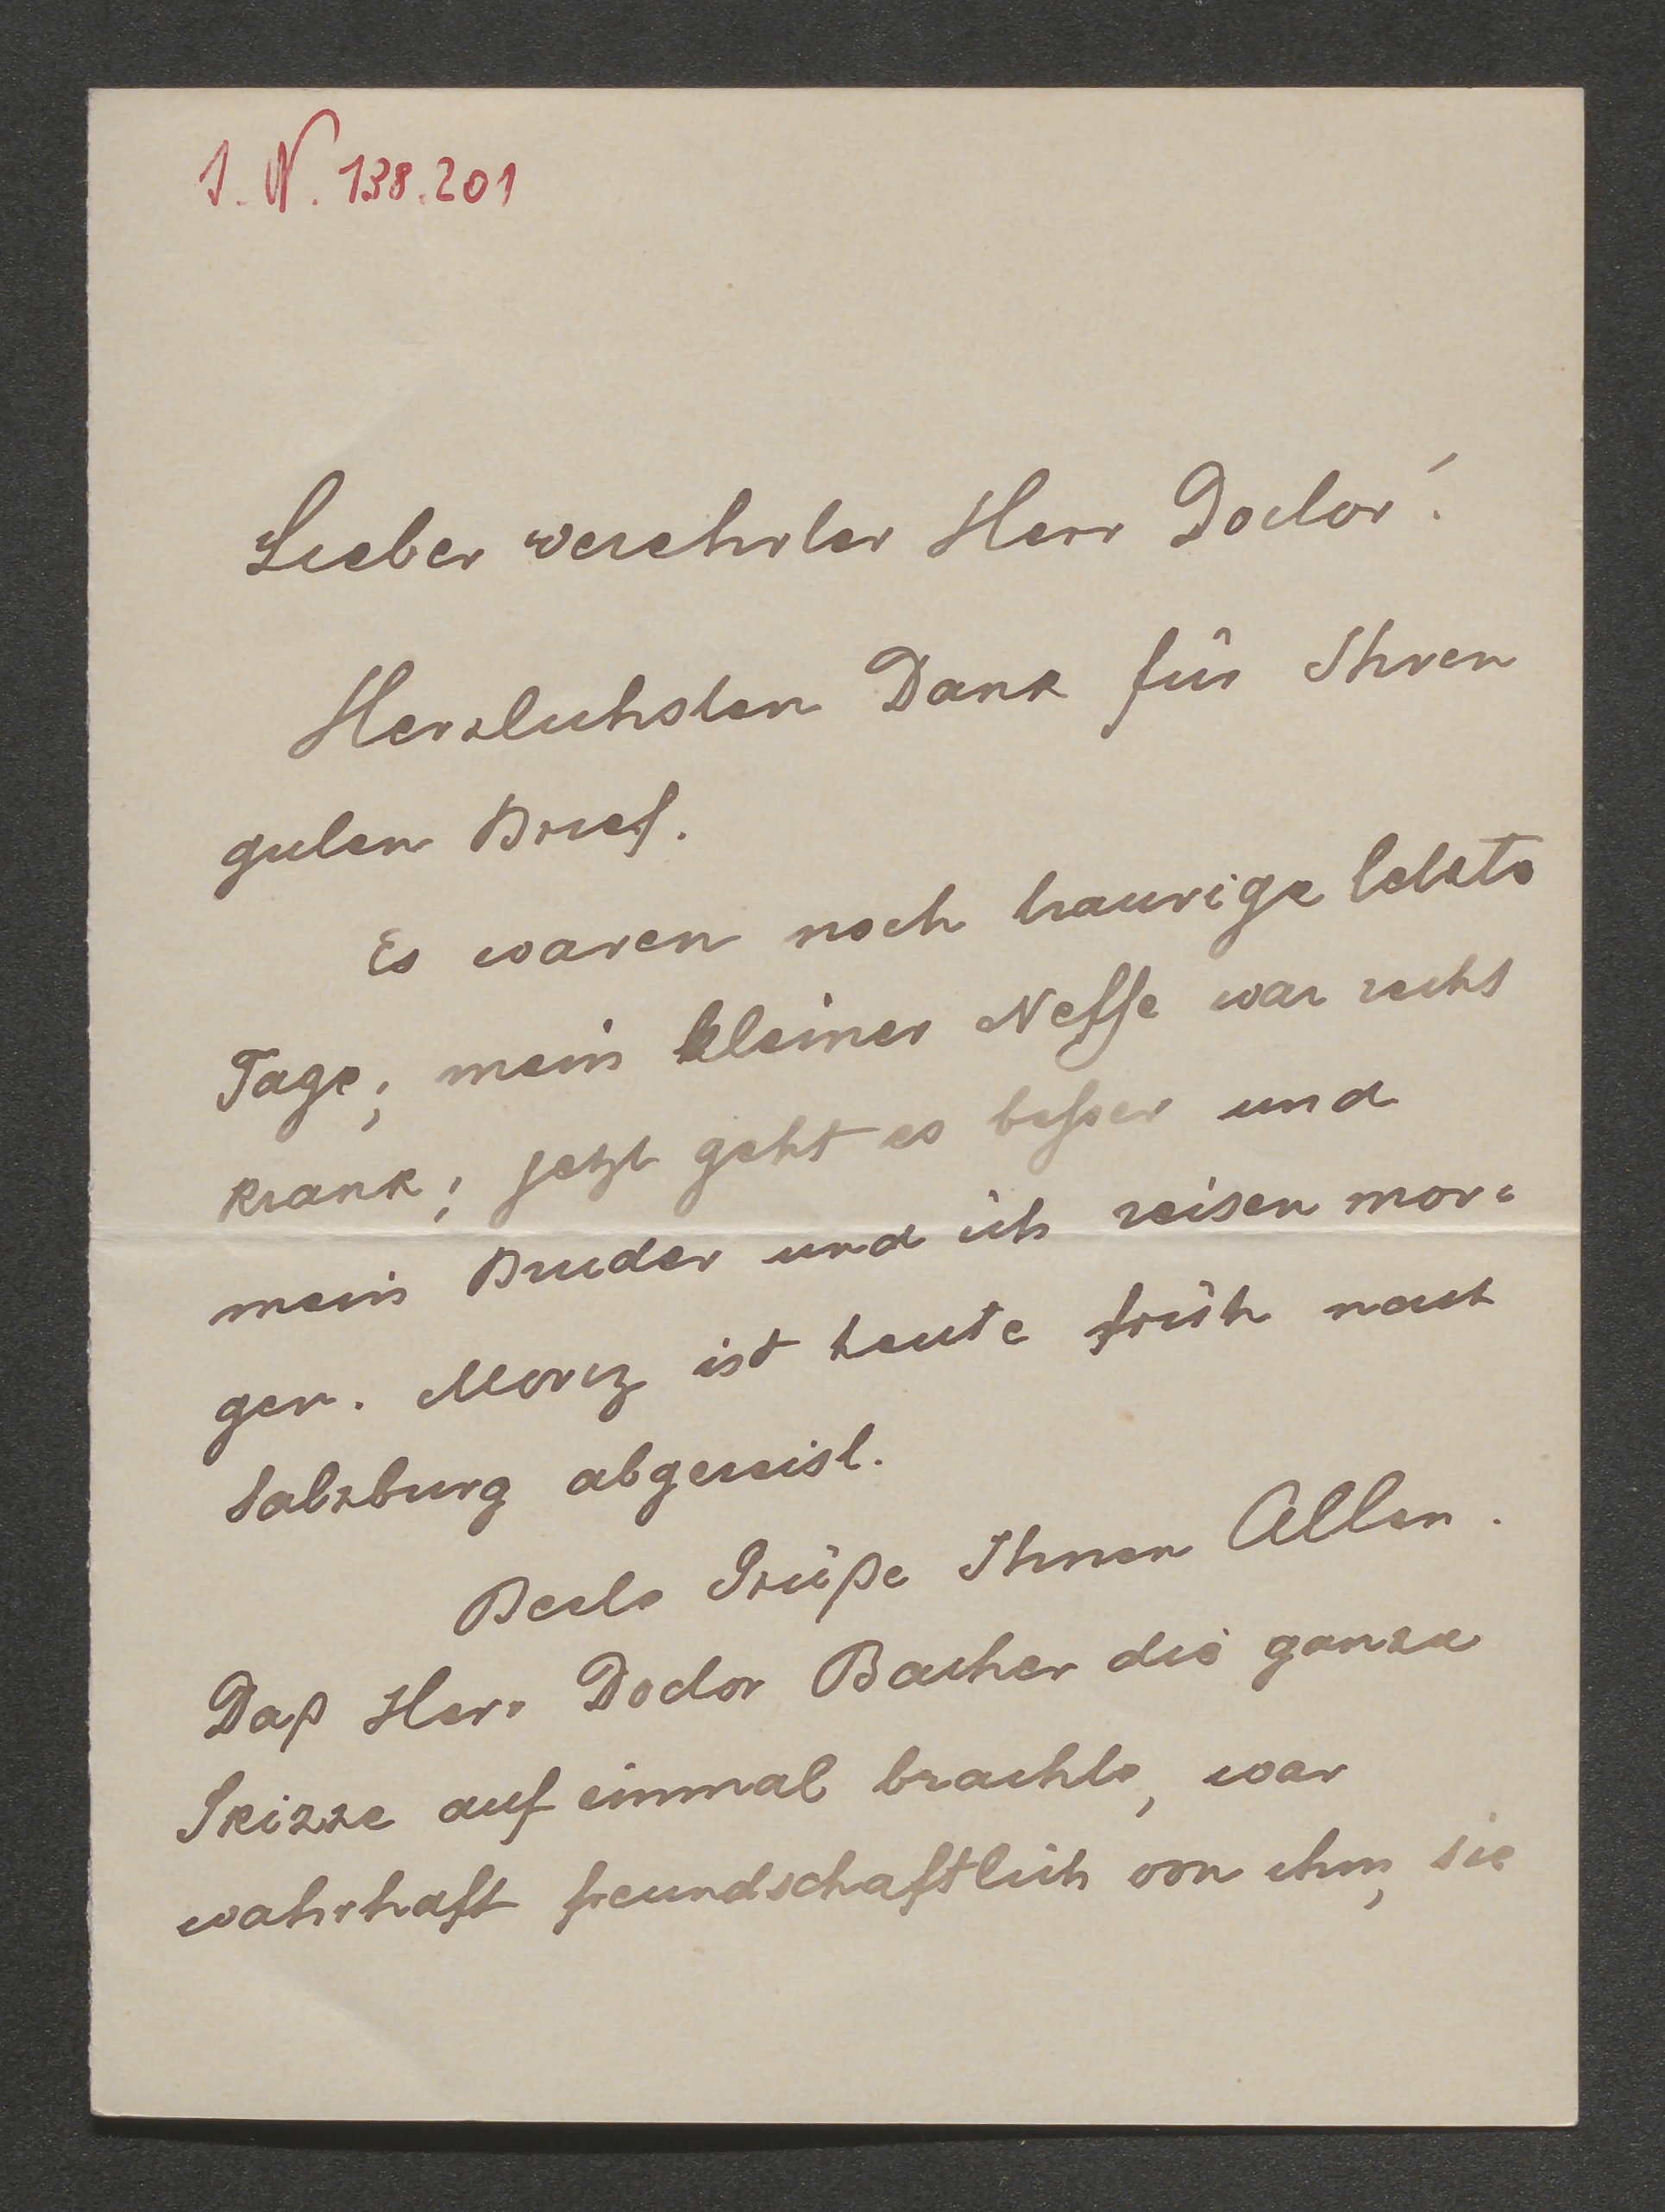 I. N. 138.201
Lieber verehrter Herr Doctor!
Herzlichsten Dank für Ihren
guten Brief.
Es waren noch traurige letzte
Tage; mein kleiner Neffe war recht
krank; jetzt geht es besser und
mein Bruder und ich reisen mor=
gen. Moriz ist heute früh nach
Salzburg abgereist.
Beste Grüße Ihnen Allen.
Daß Herr Doctor Bacher die ganze
Skizze auf einmal brachte, war
wahrhaft freundschaftlich von ihm, sie